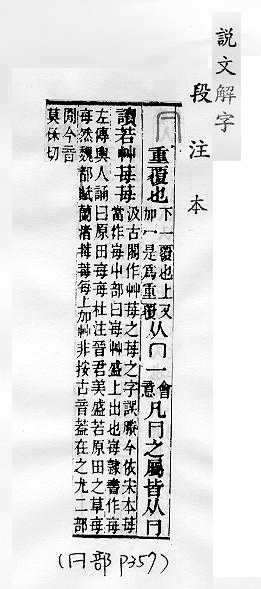 說文解字
段注本
𠔼 重覆也下一覆也上又加一是爲重覆从冂一會意凡𠔼之屬皆从𠔼
讀若艸苺苺汲古閣作艸苺之苺之字誤賸今依宋本苺當作每屮部曰每艸盛上出也每隸書作每
左傳輿人誦曰原田每每杜注晉君美盛若原田之草每
每然魏都賦蘭渚莓莓每上加艸非按古音葢在之尤二部
閒今音
莫保切
(𠔼部 p357)